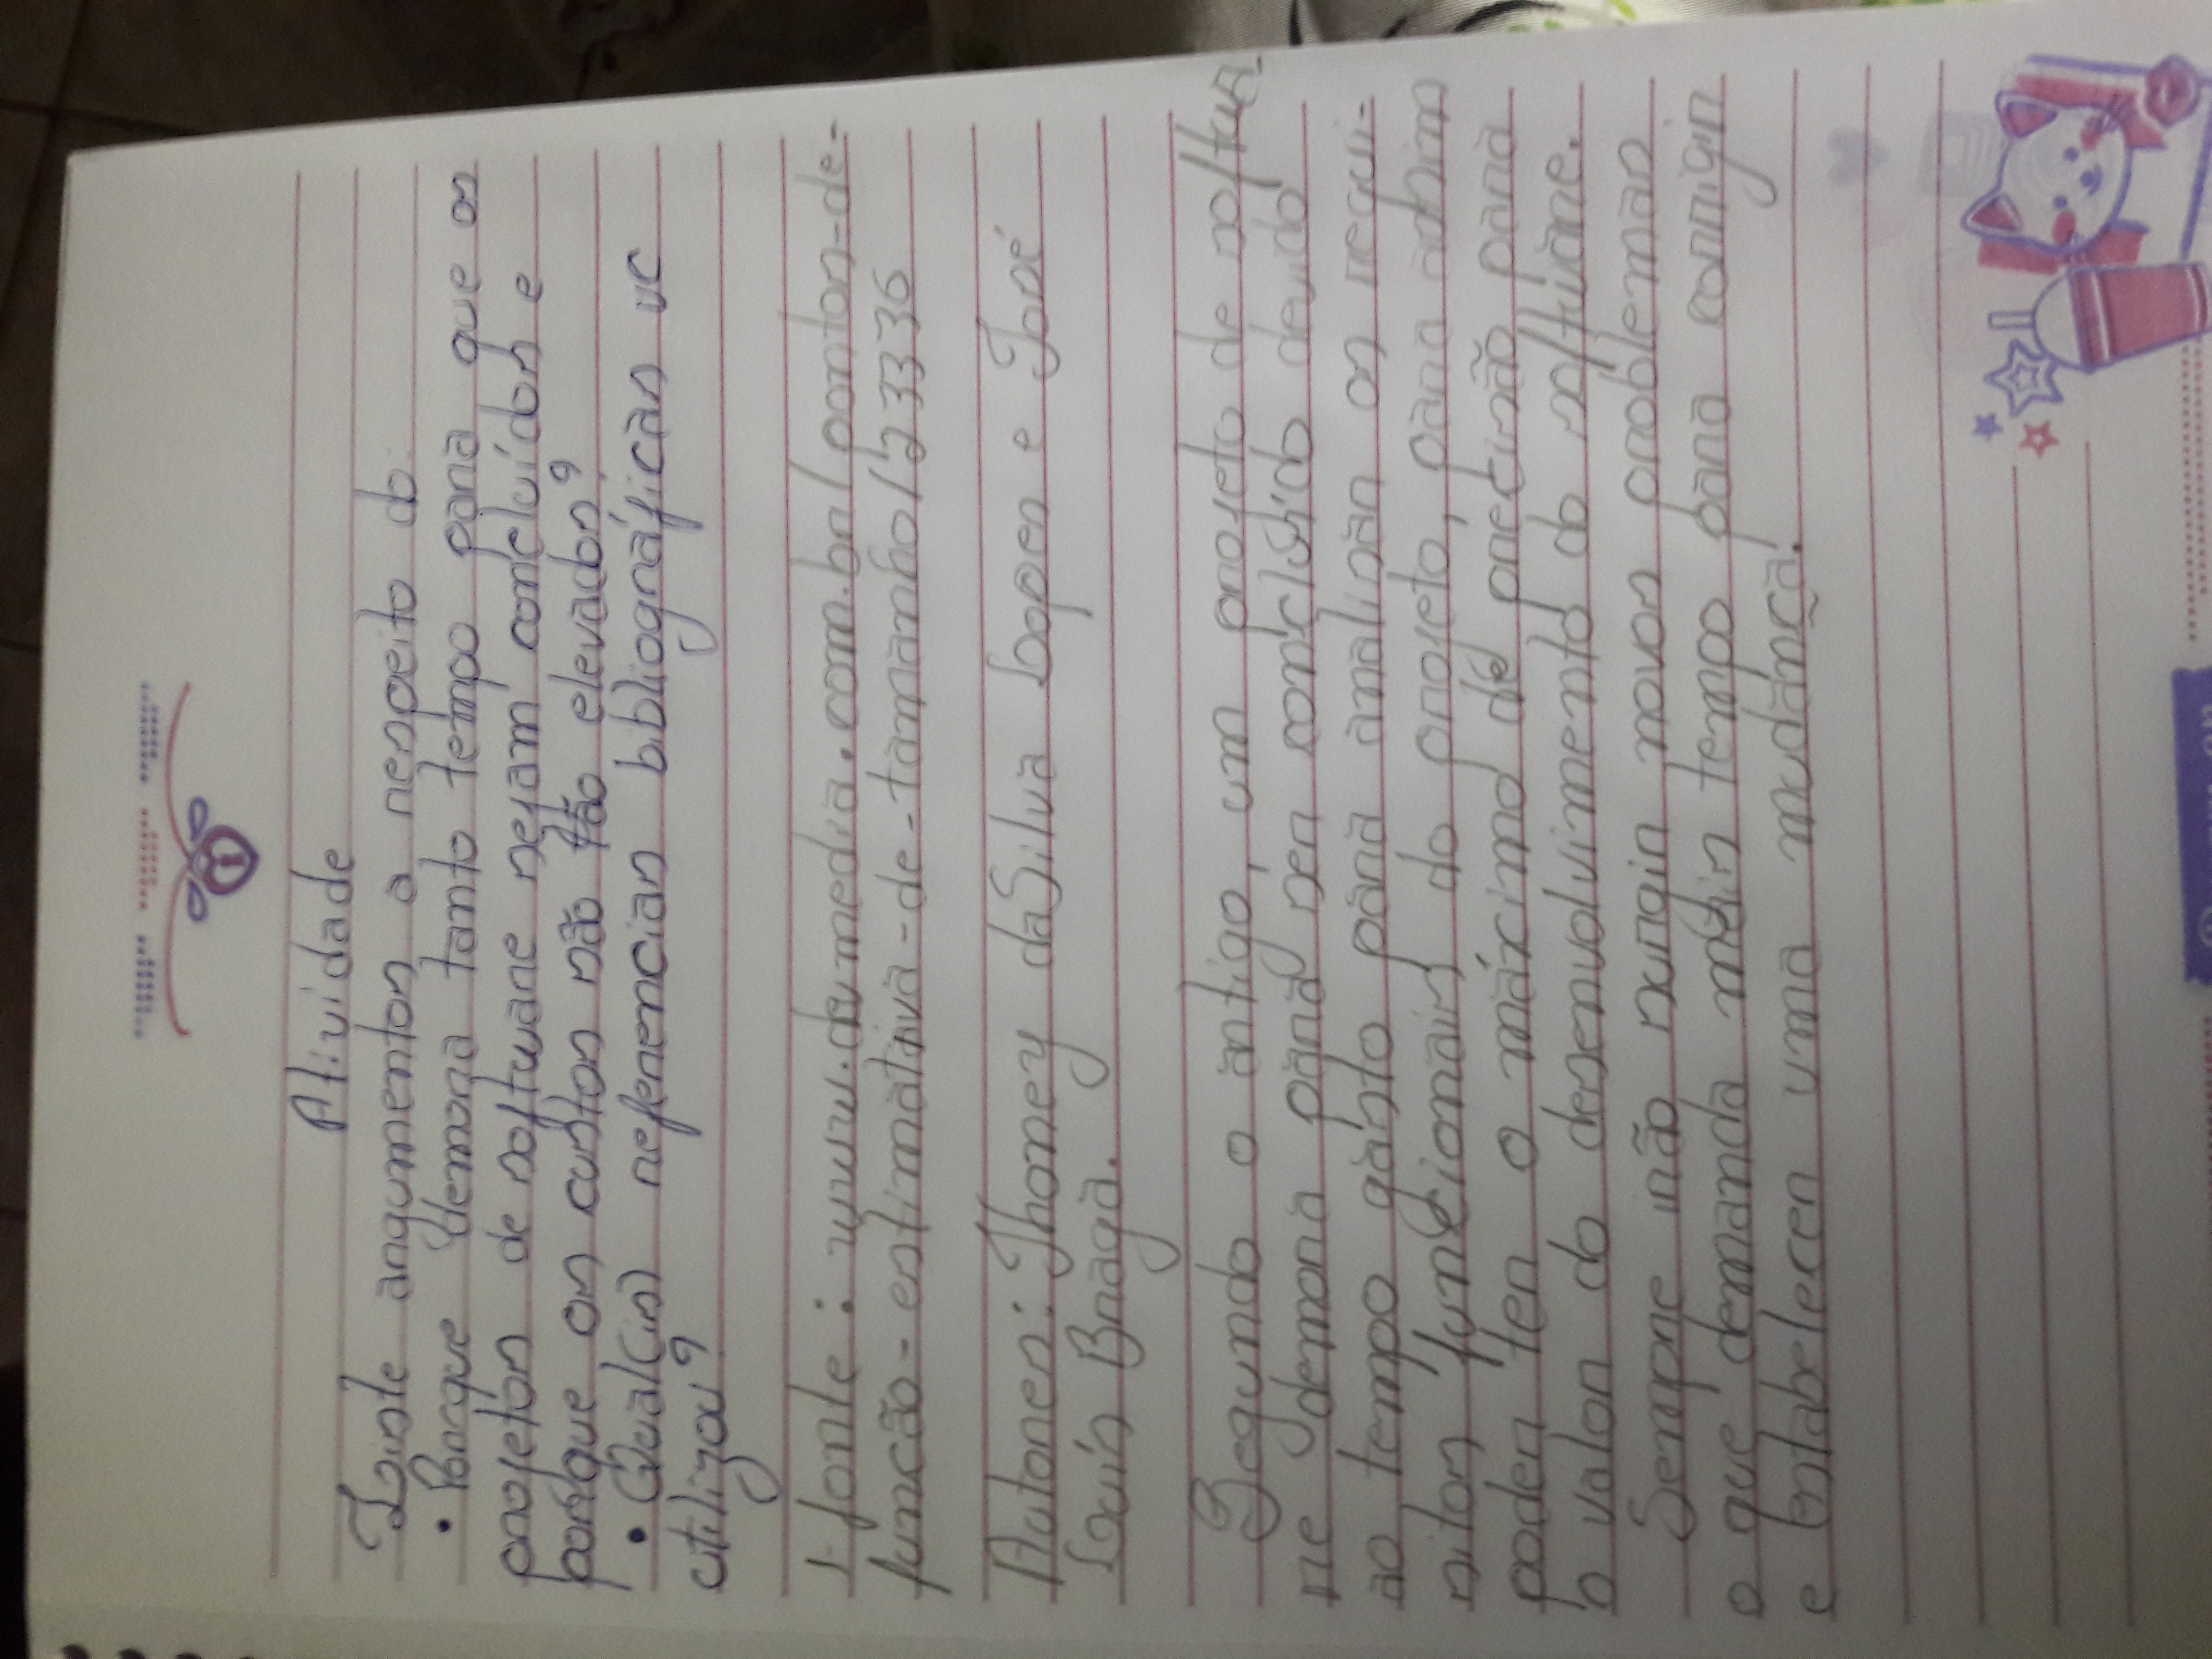 Atividade
Liste argumentos a respeito do:
• Porque demora tanto tempo para que os
projetos de software sejam concluídos e
porque os custos são tão elevados?
• Qual(is) referencias bibliográficas vc
utilizou?
1-fonte: www.devmedia.com.br/pontos-de-
função-estimativa-de-tamanho/23336
Autores: Jhoney da Silva Lopes e José
Louis Braga.
Segundo o artigo, um projeto de softwa-
re demora para ser concluído devido
ao tempo gasto para analisar os requi-
sitos funcionais do projeto, para assim
poder ter o máximo de precisão para
o valor do desenvolvimento do software.
Sempre irão surgir novos problemas
o que demanda mais tempo para corrigir
e estabelecer uma mudança!